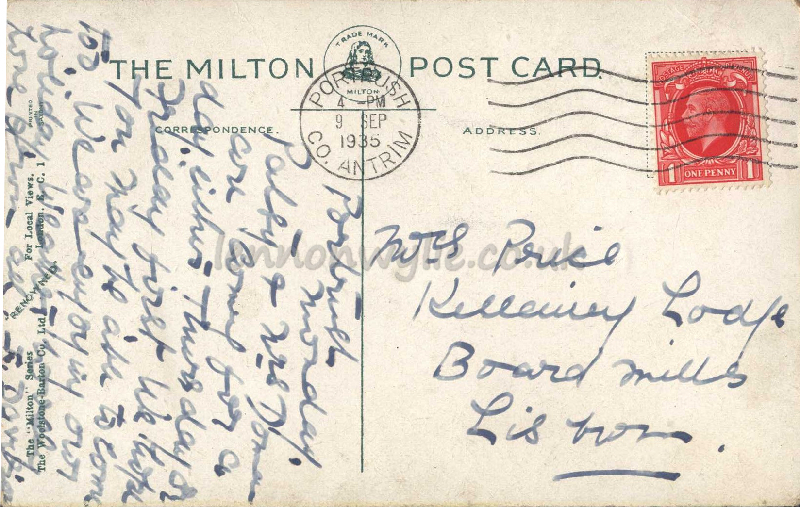 TRADE MARK
MILTON
THE MILTON POST CARD.
PORTRUSH
4 -PM
9 SEP
1935
CO. ANTRIM
POSTAGE REVENUE
ONE PENNY
1 1
CORRESPONDENCE.
ADDRESS.
Portrush
Monday.
Patsy & Mrs
are coming for a
day either Thursday or
Friday first We hope
you may be able to come
too. We are enjoying our
holiday
Mrs Price
Lodge
Board Mills
Lisburn.
The "Milton" Series
RENOWNED
For Local Views.
The Woodstone-Barton Co. Ltd. London. E. C. 1
lennonwylie.co.uk